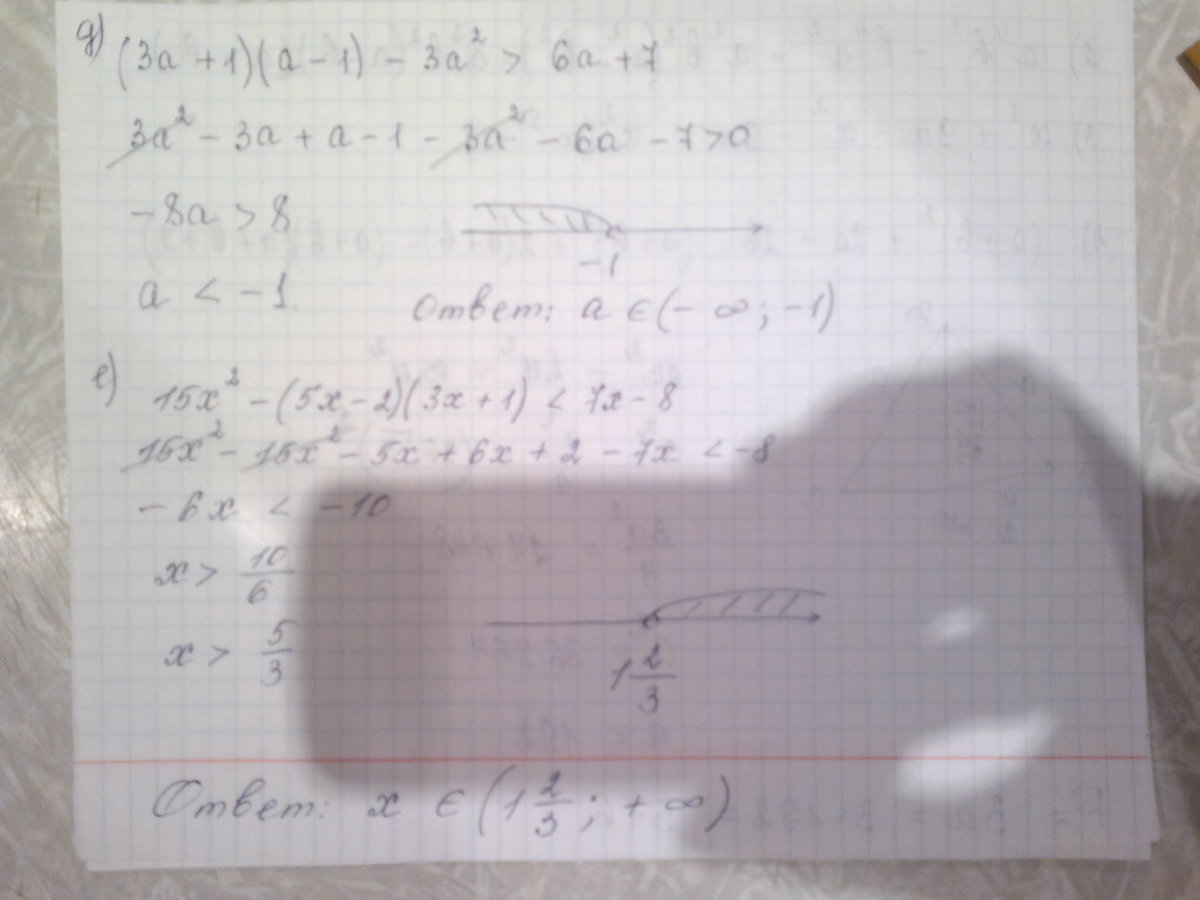 д) (3a + 1)(a - 1) - 3a² > 6a + 7
3a² - 3a + a - 1 - 3a² - 6a - 7 > 0
-8a > 8
-1
a < -1.
Ответ: a ∈ (- ∞; -1)
е) 15x² - (5x - 2)(3x + 1) < 7x - 8
15x² - 15x² - 5x + 6x + 2 - 7x < -8
- 6x < -10
x > 10/6
x > 5/3
1 2/3
Ответ: x ∈ (1 2/3; + ∞)